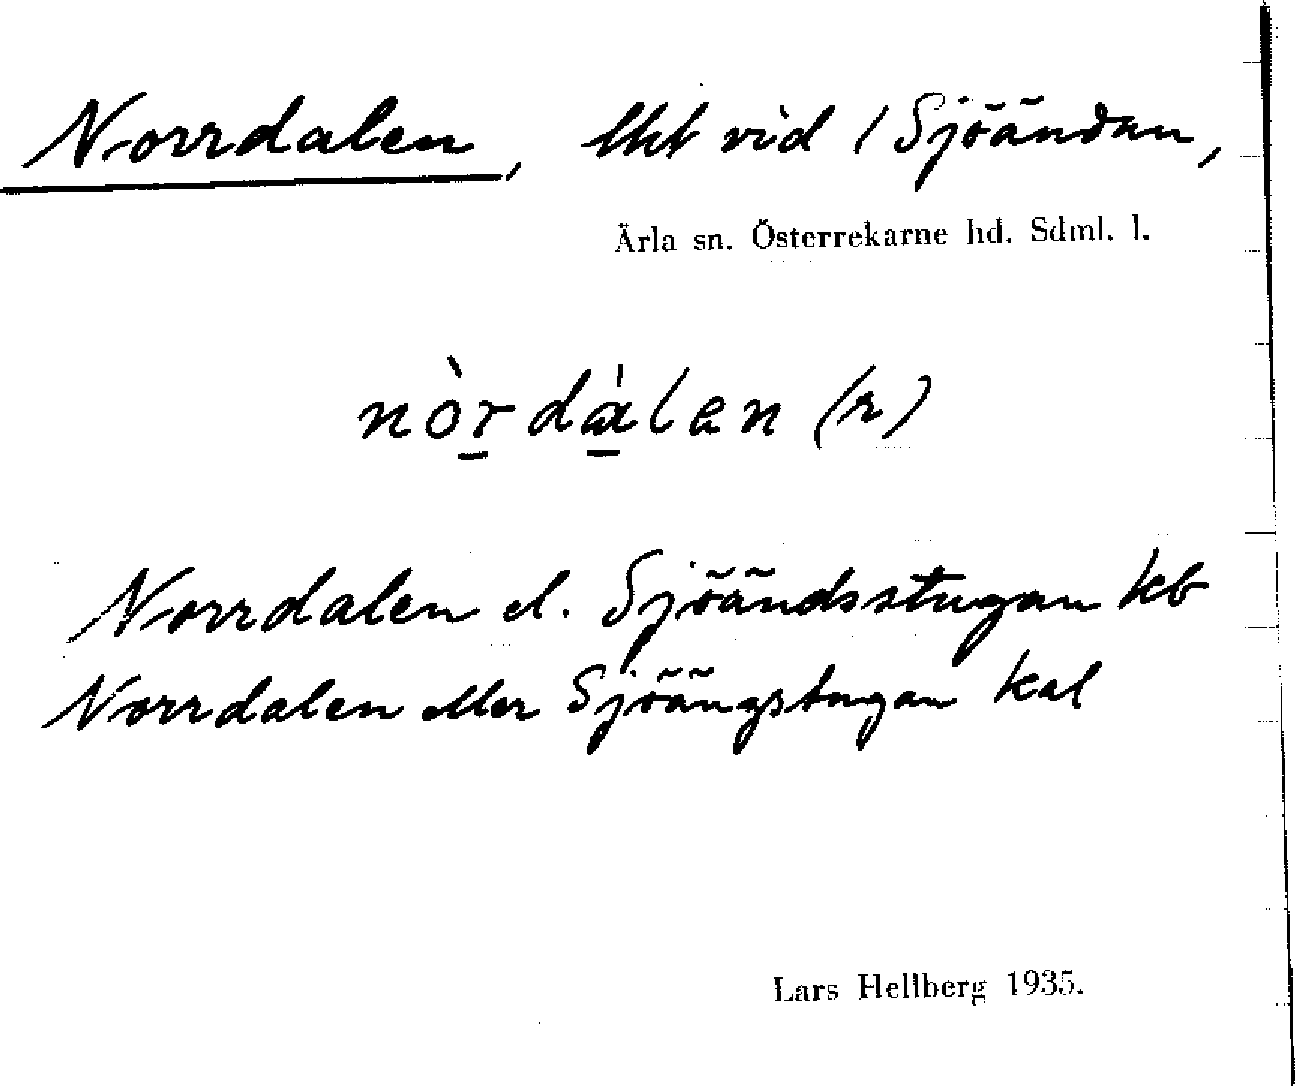 Norrdalen, lht vid / Sjöändan,
Ärla sn. Österrekarne hd. Sdml. l.
nòrdàlen (r)
Norrdalen el. Sjöändsstugan kb
Norrdalen eller Sjöängstugan kal
Lars Hellberg 1935.